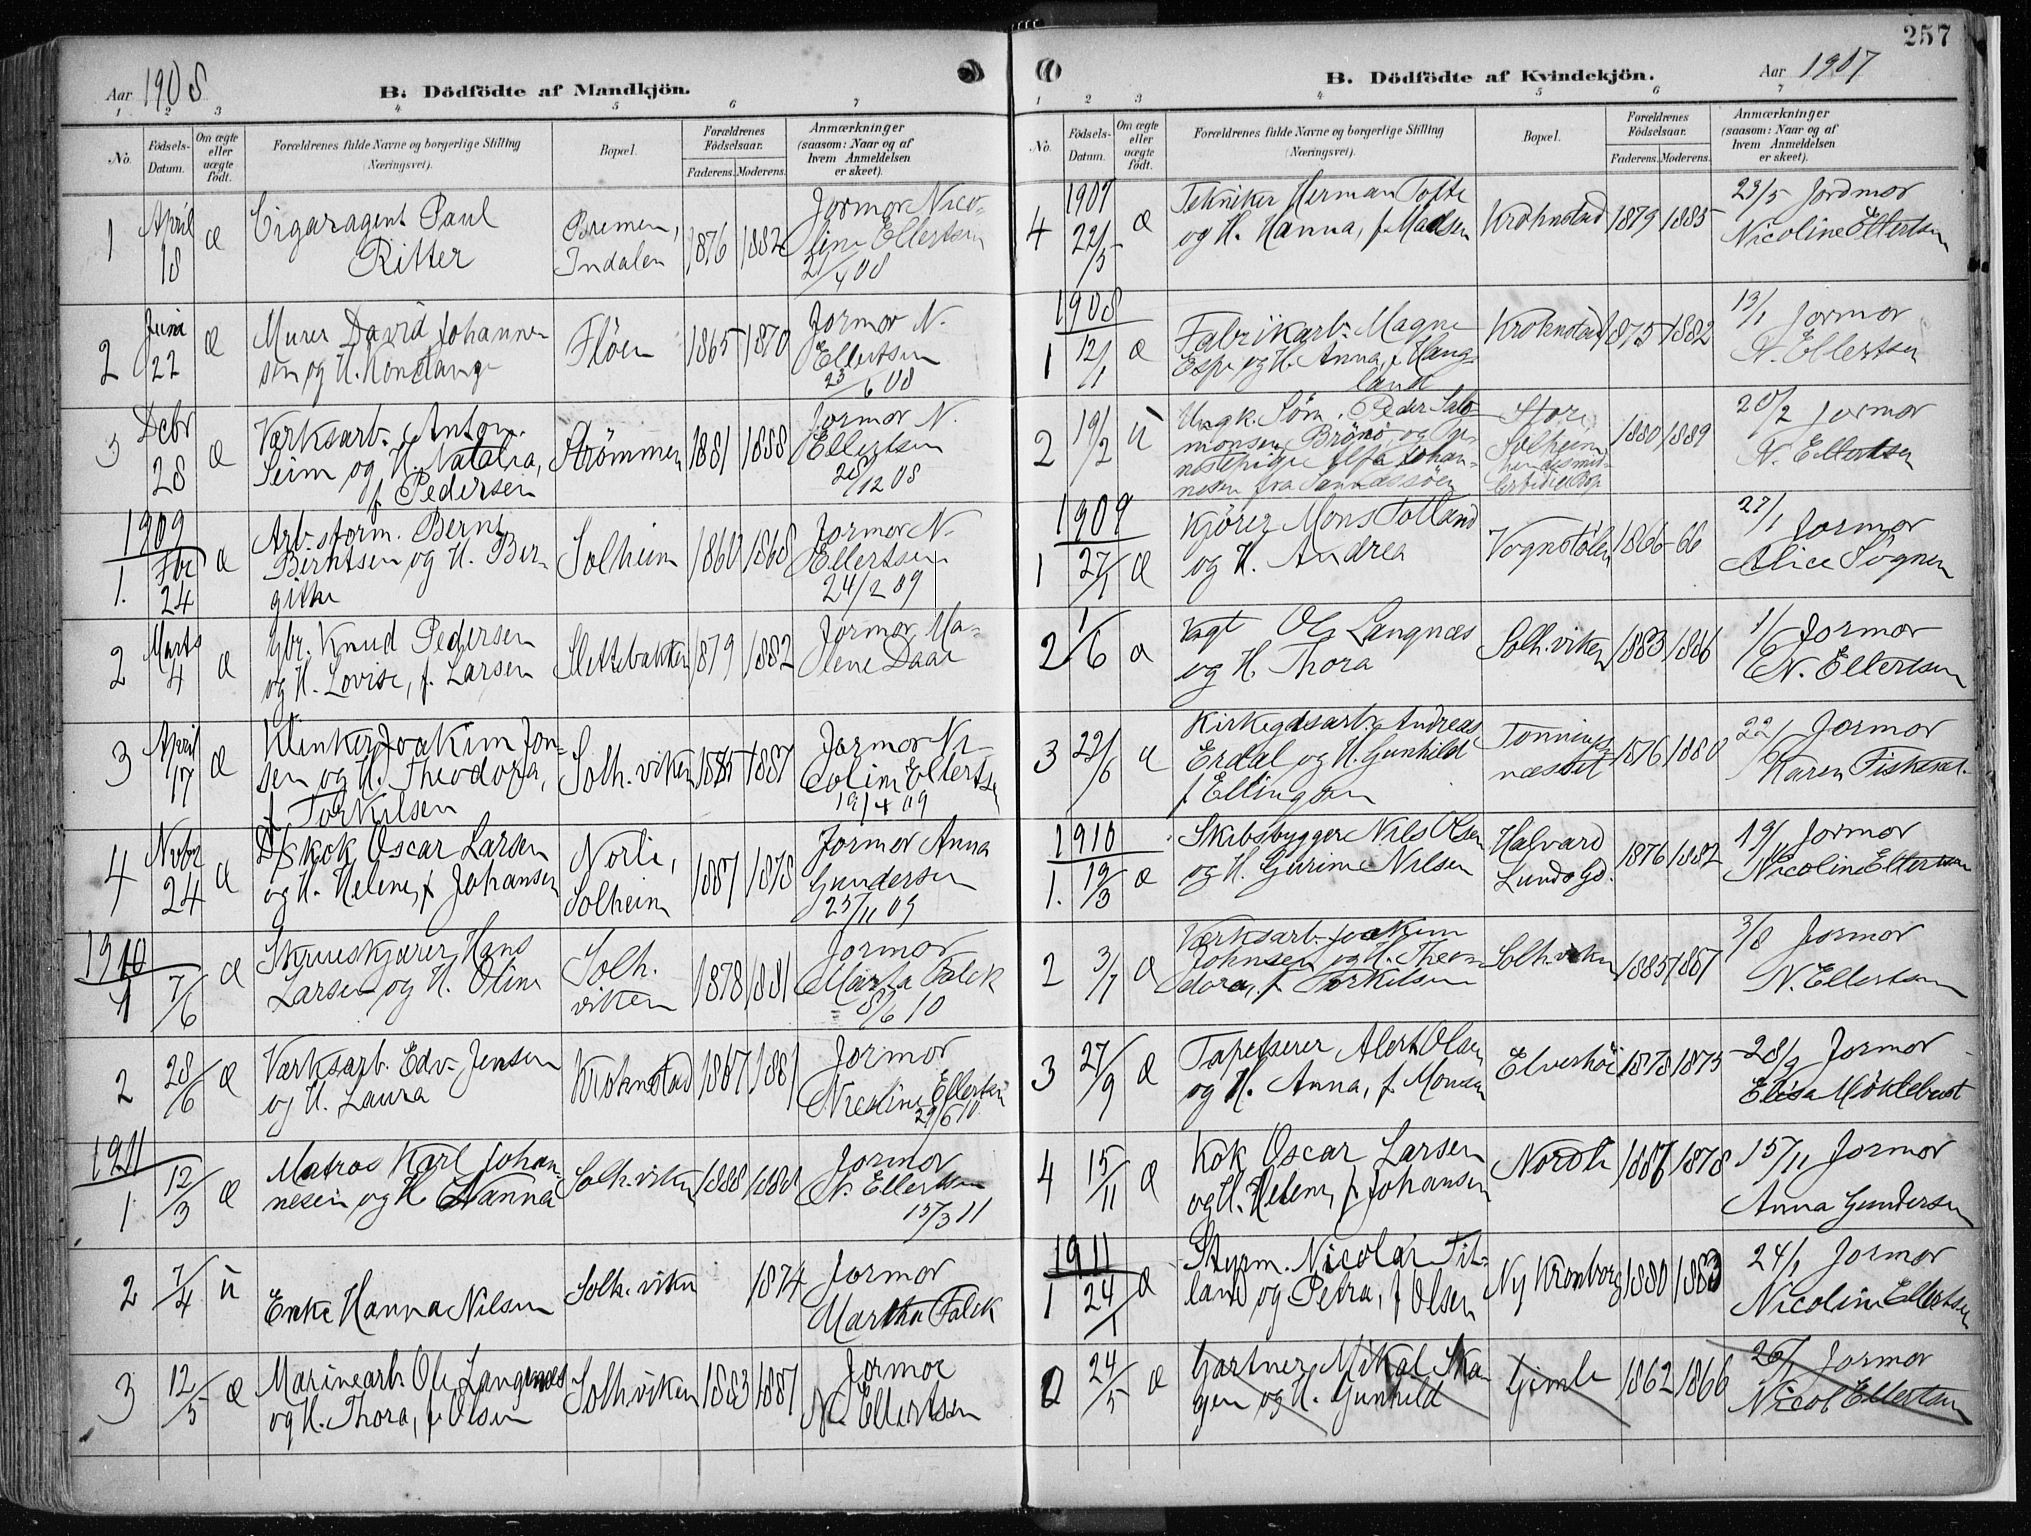 Aar 1908
B. Dödfödte af Mandkjön.
1 2 3 4 5 6 7
No.
Födsels-
Datum.
Om ægte
eller
uægte
födt.
Forældrenes fulde Navne og borgerlige Stilling
(Næringsvei).
Bopæl.
Forældrenes
Födselsaar.
Faderens. Moderens.
Anmærkninger
(saasom: Naar og af
hvem Anmeldelsen
er skeet).
1 April 18 æ Cigaragent Paul
Ritter
Bremen,
Indalen
1876 1882
Jormor Nico-
line Ellertsen
21/4 08
2 Juni 22 æ Murer David Johannes
sen og H.
Fløen
1865 1870
Jormor N.
Ellertsen
23/6 08
3 Decbr 28 æ Værksarb. Anton
Seim og H. Natalia,
f. Pedersen
Strømmen
1881 1888
Jormor N.
Ellertsen
28/12 08
1909
1. Fbr 24 æ Arb.form. Bernt
Berntsen og H. Ber-
githe
Solheim
1860 1868
Jormor N.
Ellertsen
24/2 09
2 Marts 4 æ Gbr. Knud Pedersen
og H. Lovise, f. Larsen
Slettebakken
1879 1882
Jormor Ma-
lene Daae
3 April 17 æ Klinker Joakim Jon-
sen og H. Theodora,
f. Torkilsen
Solh.viken
1885 1887
Jormor Ni-
coline Ellertsen
19/4 09
4 Nvbr 24 æ D/S kok Oscar Larsen
og H. Helene, f. Johansen
Norli,
Solheim
1887 1878
Jormor Anna
Gundersen
25/11 09
1910
1 7/6 æ Skrueskjærer Hans
Larsen og H. Oline
Solh.
viken
1878 1881
Jormor
Marta Falck
8/6 10
2 28/6 æ Værksarb. Edv. Jensen
og H. Laura
Krohnstad
1867 1881
Jormor
Nicoline Ellertsen
29/6 10
1911
1. 12/3 æ Matros Karl Johan-
nesen og H. Hanna
Solh.viken
1888
Jormor
N. Ellertsen
15/3 11
2 7/4 ü Enke Hanna Nilsen
Solh.viken
1874
Jormor
Martha Falck
3 12/5 æ Marinearb. Ole Langenæs
og H. Thora, f. Olsen
Solh.viken
1883 1887
Jormor
N. Ellertsen
257
B. Dödfödte af Kvindekjön.
Aar 1907
1 2 3 4 5 6 7
No.
Födsels-
Datum.
Om ægte
eller
uægte
födt.
Forældrenes fulde Navne og borgerlige Stilling
(Næringsvei).
Bopæl.
Forældrenes
Födselsaar.
Faderens. Moderens.
Anmærkninger
(saasom: Naar og af
hvem Anmeldelsen
er skeet).
1907
4 22/5 æ Tekniker Herman Tofte
og H. Hanna, f. Madsen
Krohnstad
1879 1885
23/5 Jordmor
Nicoline Ellertsen
1908
1 12/1 æ Fabrikarb. Magne
Espe og H. Anna, f. Haug-
land
Krohnstad
1875 1882
13/1 Jormor
N. Ellertsen
2 19/2 ü Ungk. Søm. Peder Salo-
monsen Brönö og
Johan-
nesen fra
Store
Solheim
1880 1889
20/2 Jormor
N. Ellertsen
1909
1 27/1 æ Kjører Mons Totland
og H. Andrea
Vognstølen
1866 66
27/1 Jormor
Alice Sognen
2 1/6 æ Vagt Ole Langnæs
og H. Thora
Solh.viken
1883 1886
1/6 Jormor
N. Ellertsen
3 22/6 æ Kirkegdsarb. Andreas
Erdal og H. Gunhild
f. Ellingsen
Tonnings
næsset
1876 1880
22/6 Jormor
Karen
1910
1. 19/3 æ Skibsbygger Nils Olsen
og H. Gurine Nilsen
Halvard
Lunds Gd.
1876 1882
19/3 Jormor
Nicoline Ellertsen
2 3/7 æ Værksarb. Joakim
Johnsen og H. Theo-
dora, f. Torkilsen
Solh.viken
1885 1887
3/8 Jormor
N. Ellertsen
3 27/9 æ Tapetserer Alert Olsen
og H. Anna, f. Monsen
Elveshöi
1878 1875
28/9 Jormor
Elisa Möklebust
4 15/11 æ Kok Oscar Larsen
og H. Helene, f. Johansen
Nordli
1887 1878
15/11 Jormor
Anna Gundersen
1911
1 24/1 æ Styrm. Nicolai Tit-
land og Petra, f. Olsen
Ny Kronborg
1880 1883
24/1 Jormor
Nicoline Ellertsen
2 24/5 æ Gartner Mikal Ska-
gen og H. Gunhild
Gimle
1862 1866
26/5 Jormor
Nicol Ellertsen